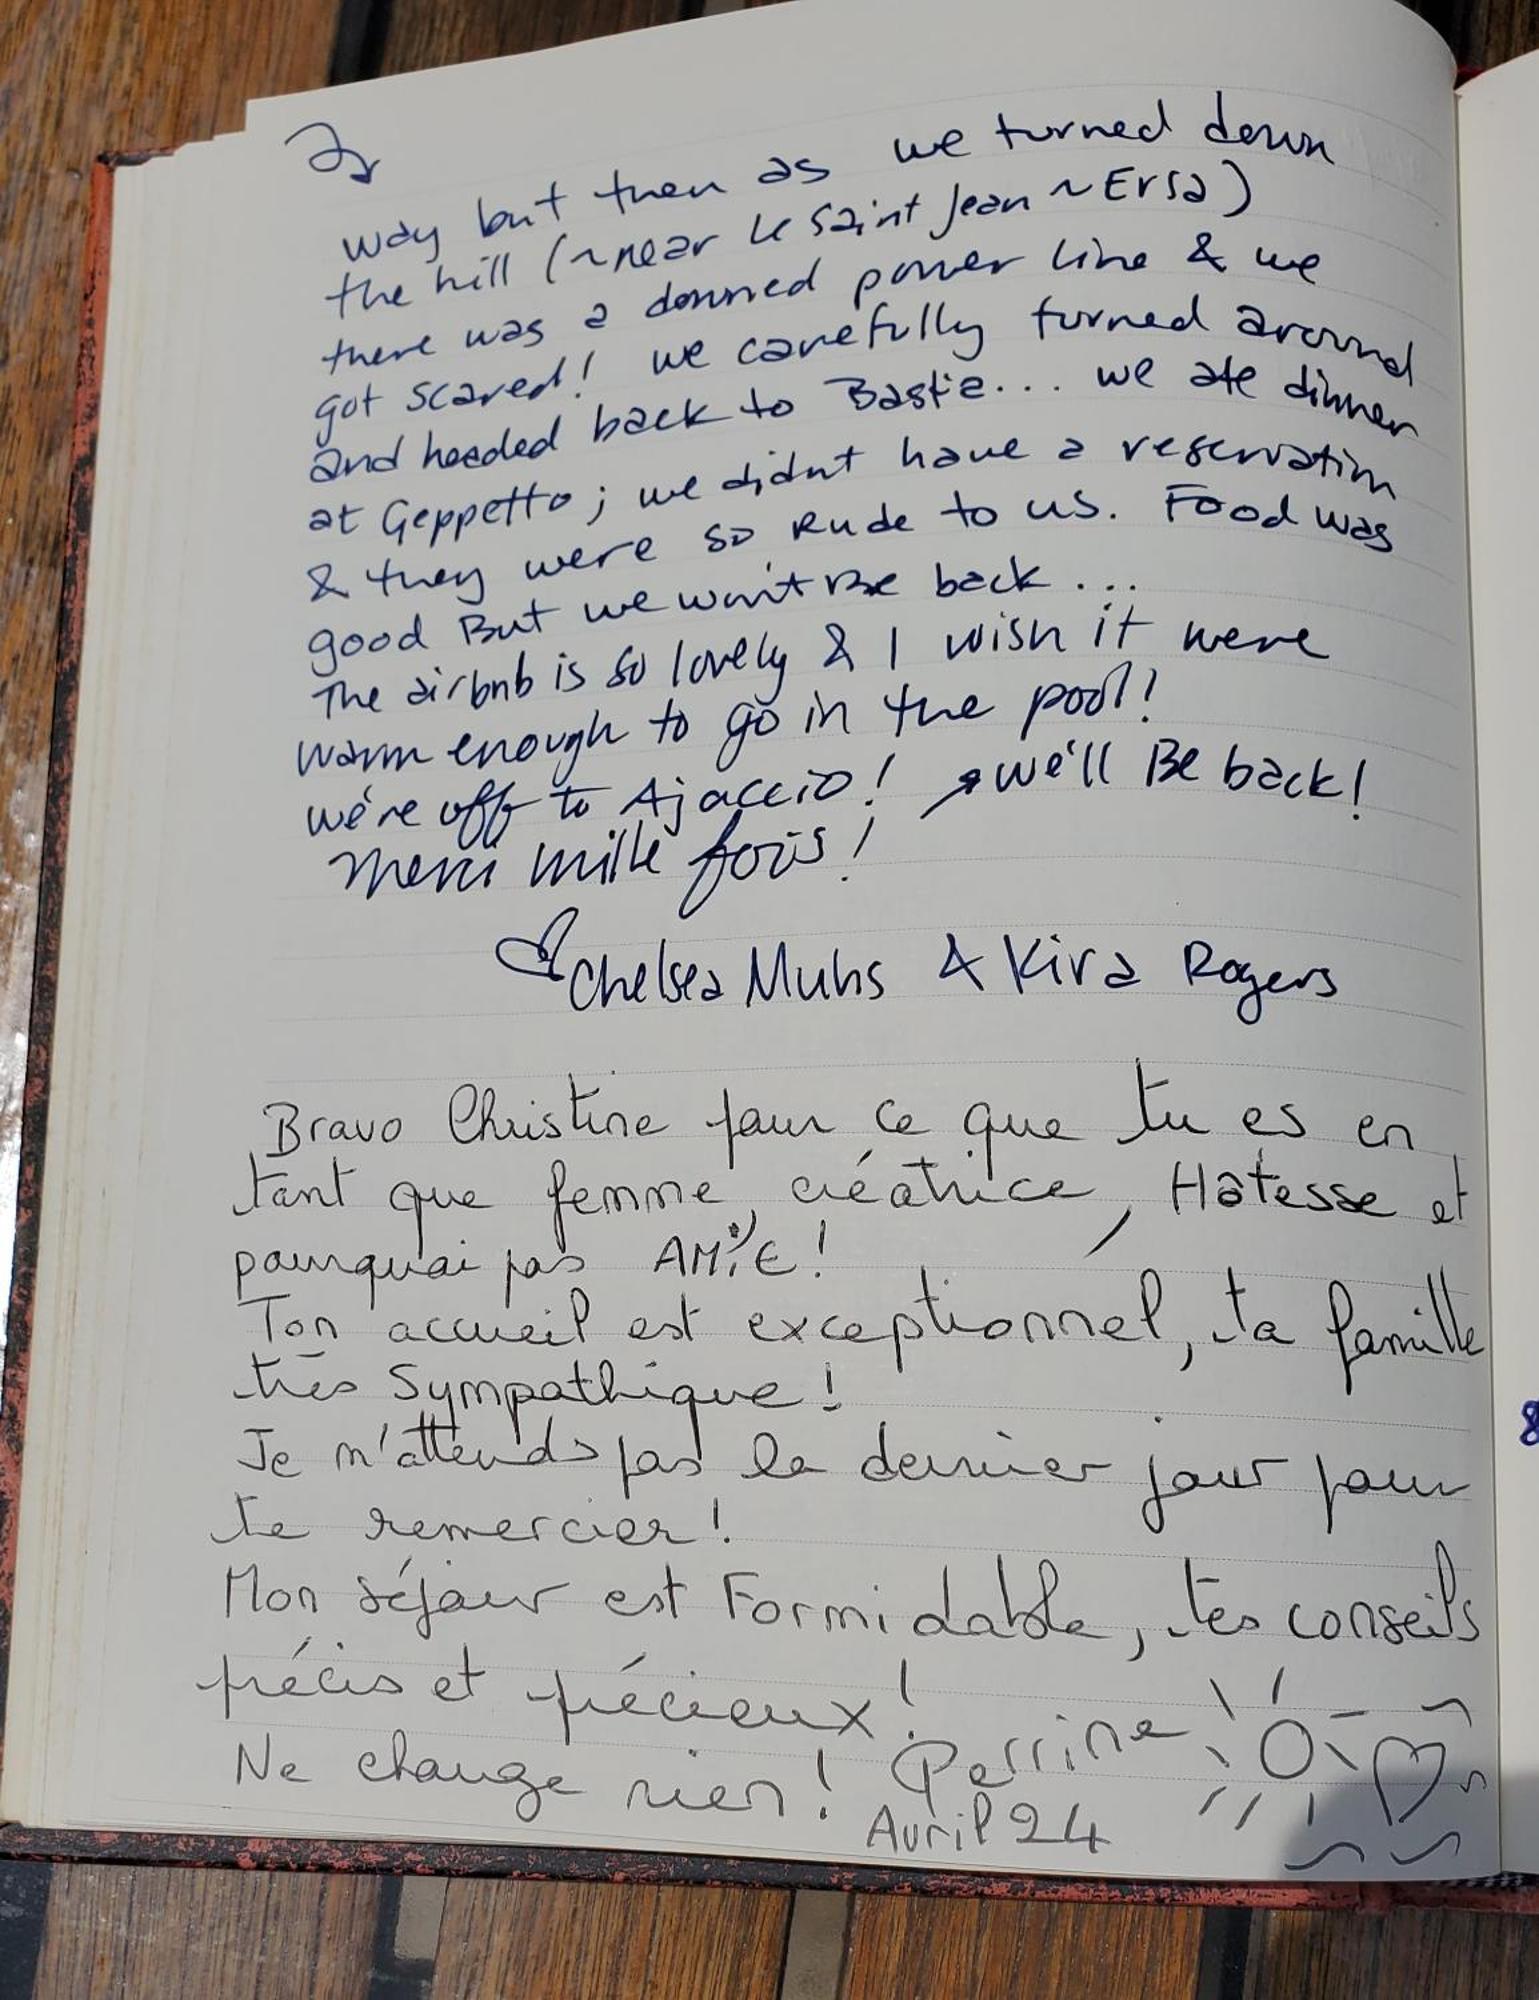 way but then as we turned down
the hill (~near Le Saint Jean ~Ersa)
there was a downed power line & we
got scared! we carefully turned around
and headed back to Bastia... we ate dinner
at Geppetto; we didn't have a reservation
& they were so Rude to us. Food was
good But we won't Be back...
The airbnb is so lovely & I wish it were
warm enough to go in the pool!
we're off to Ajaccio! → we'll Be back!
Merci mille fois!
♡ Chelsea Muhs & Kira Rogers
Bravo Christine pour ce que tu es en
tant que femme, créatrice, Hôtesse et
pourquoi pas AMiE!
Ton accueil est exceptionnel, ta famille
très Sympathique!
Je n'attends pas le dernier jour pour
te remercier!
Mon séjour est Formidable, tes conseils
précis et précieux!
Ne change rien! Perrine
Avril 24
8